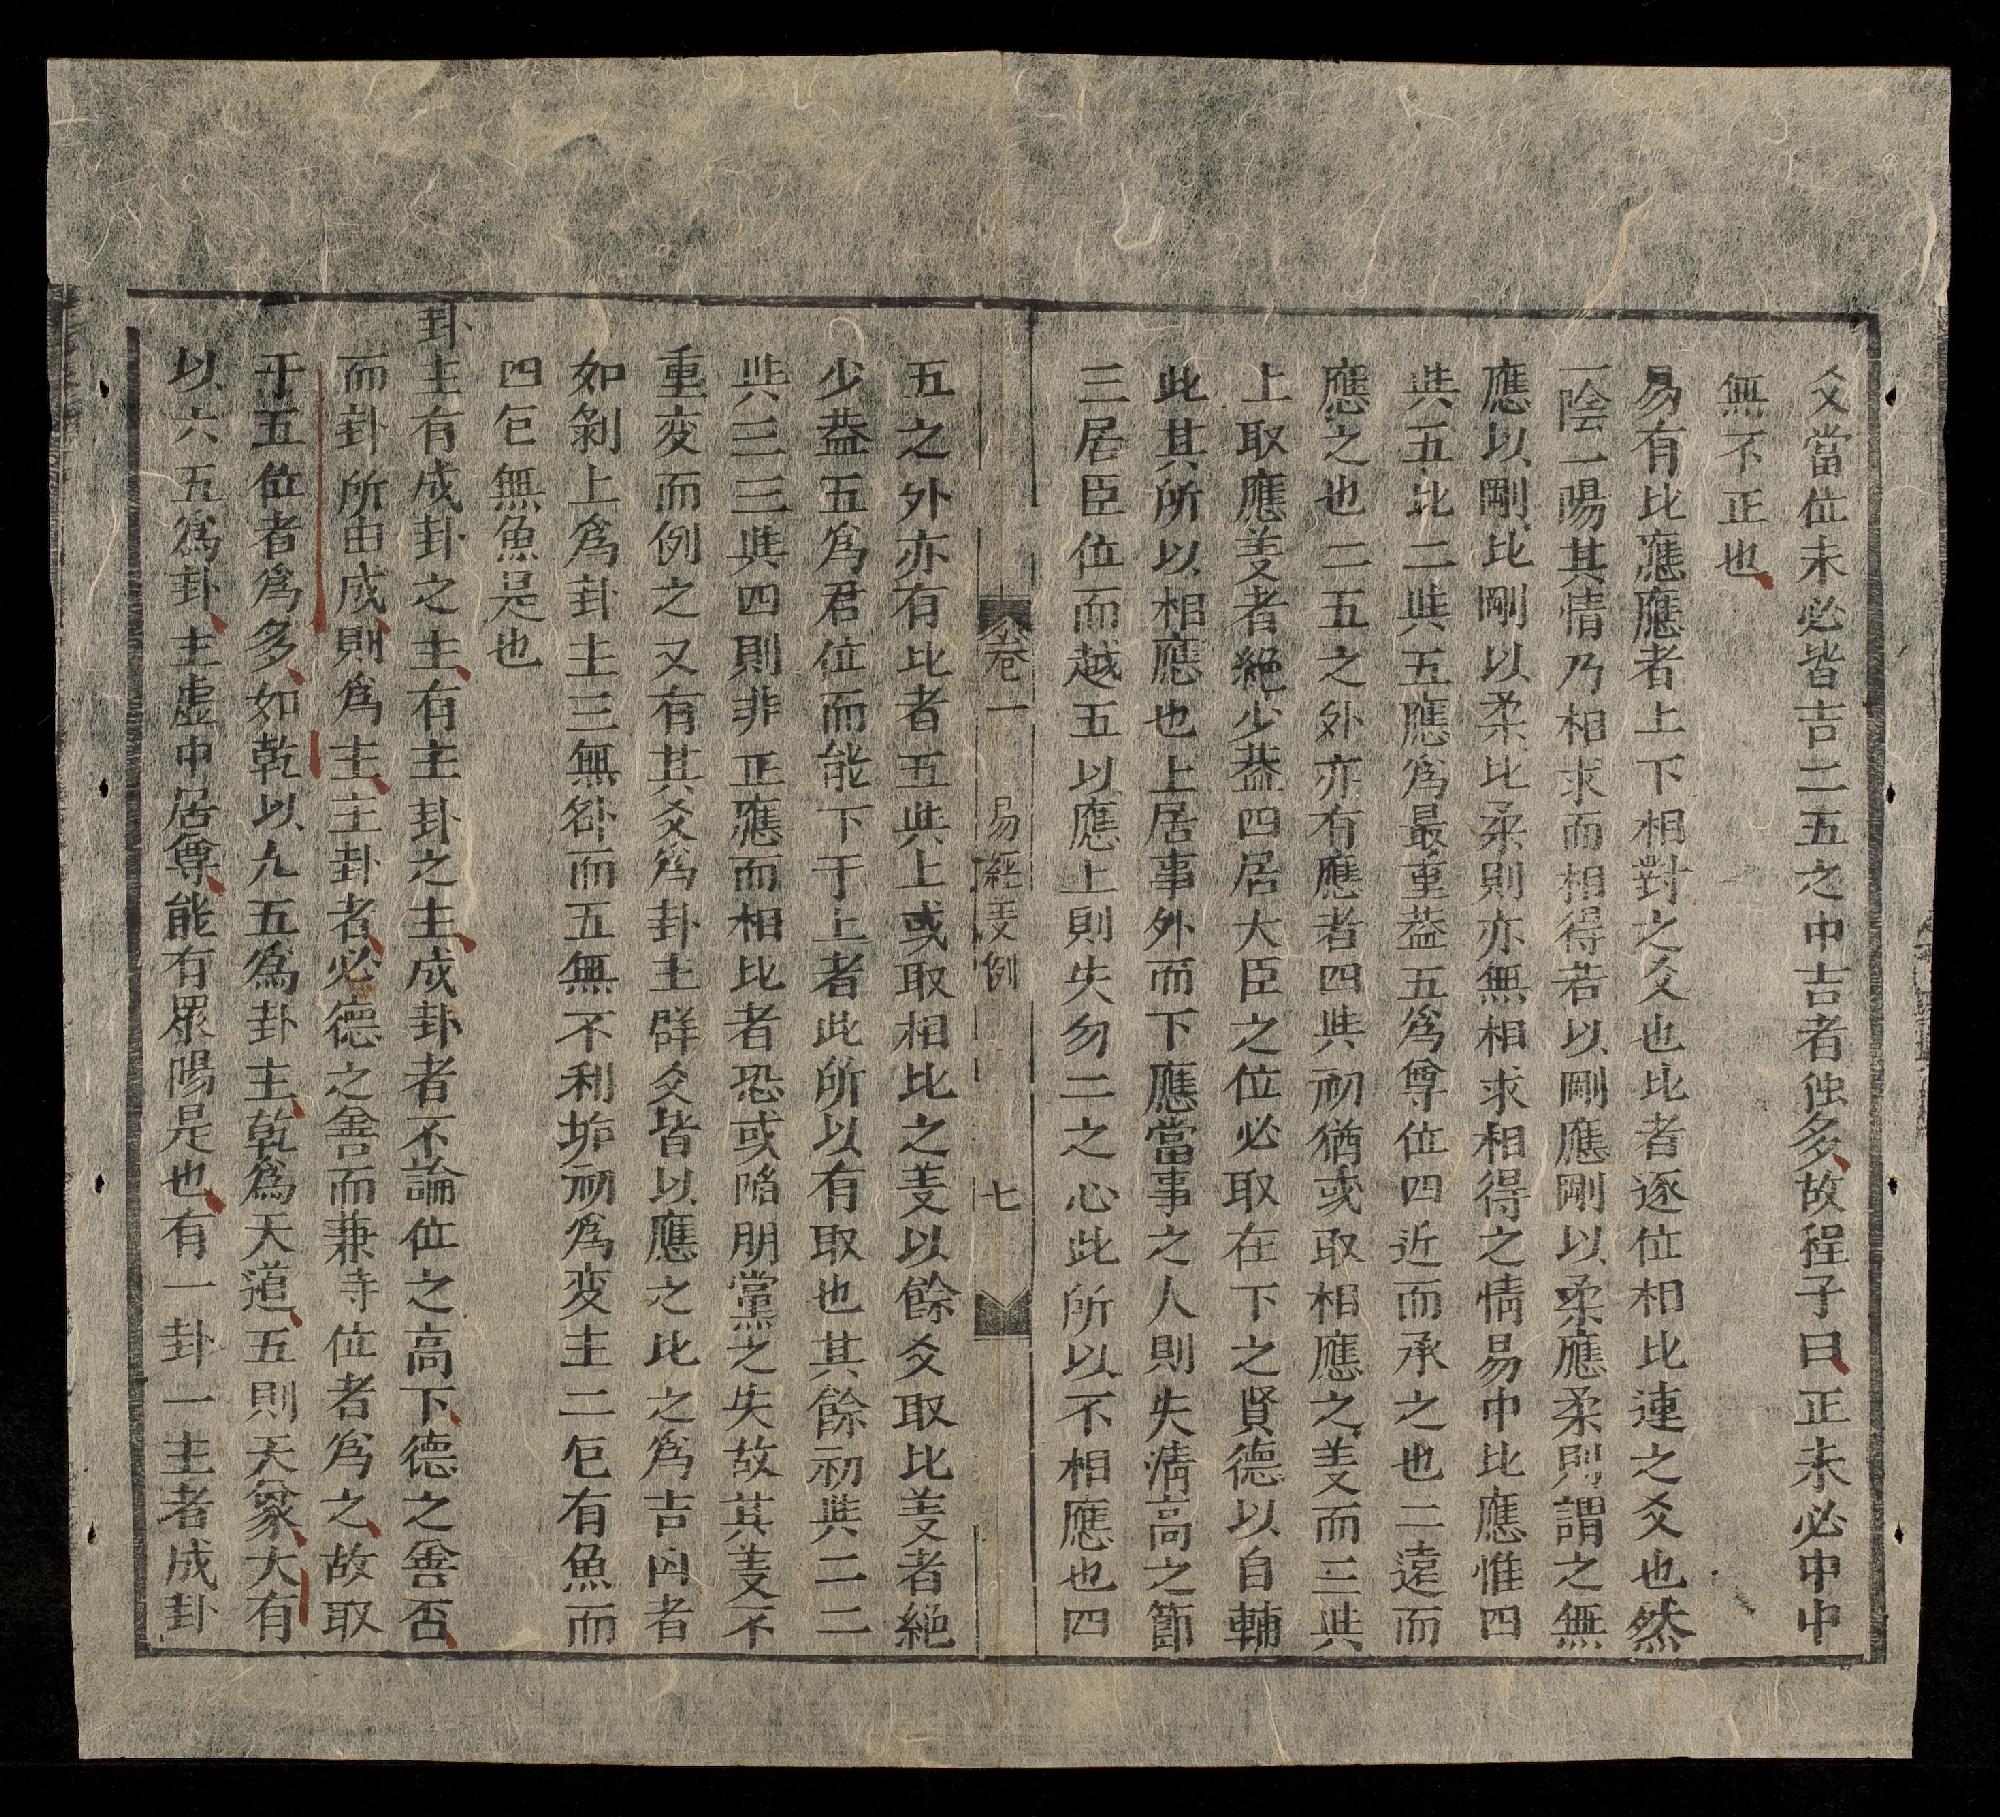 爻當位未必皆吉二五之中吉者独多故程子曰正未必中中
無不正也
易有比應應者上下相對之爻也比者逐位相比連之爻也然
一陰一陽其情乃相求而相得若以剛應剛以柔應柔則謂之無
應以剛比剛以柔比柔則亦無相求相得之情易中比應惟四
與五比二與五應爲最重蓋五爲尊位四近而承之也二遠而
應之也二五之外亦有應者四與初猶或取相應之义而三與
上取應义者絕少蓋四居大臣之位必取在下之賢德以自輔
此其所以相應也上居事外而下應當事之人則失清高之節
三居臣位而越五以應上則失勿二之心此所以不相應也四
卷一 易經义例 七
五之外亦有比者五與上或取相比之义以餘爻取比义者絕
少蓋五爲君位而能下于上者此所以有取也其餘初與二二
與三三與四則非正應而相比者恐或陷朋黨之失故其义不
重变而例之又有其爻爲卦主群爻皆以應之比之爲吉凶者
如剝上爲卦主三無咎而五無不利姤初爲变主二包有魚而
四包無魚是也
卦主有成卦之主有主卦之主成卦者不論位之高下德之善否
而卦所由成則爲主主卦者必德之善而兼時位者爲之故取
于五位者爲多如乾以九五爲卦主乾爲天道五則天象大有
以六五爲卦主虛中居尊能有眾陽是也有一卦一主者成卦